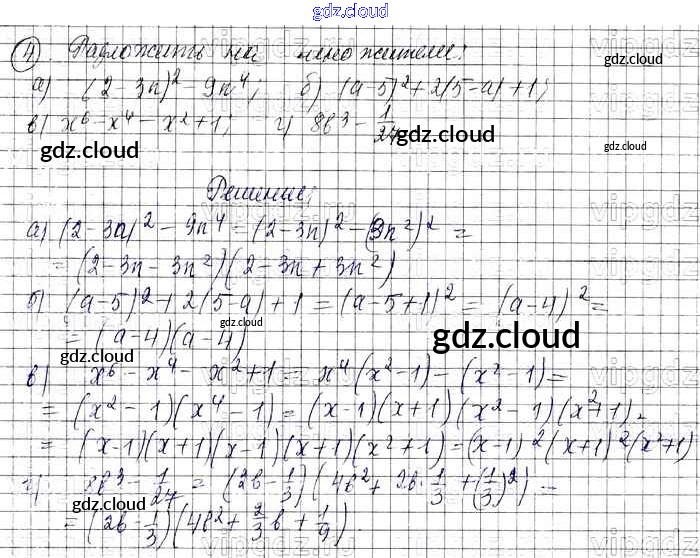 gdz.cloud
4. Разложить на множители:
а) (2-3n)² - 9n⁴; б) (a-5)²+2(5-a)+1;
в) x⁶-x⁴-x²+1; г) 8b³ - 1/27.
gdz.cloud
gdz.cloud
gdz.cloud
Решение:
а) (2-3n)² - 9n⁴ = (2-3n)² - (3n²)² =
= (2-3n-3n²)(2-3n+3n²)
б) (a-5)²+2(5-a)+1 = (a-5+1)² = (a-4)² =
= (a-4)(a-4)
gdz.cloud
gdz.cloud
gdz.cloud
в) x⁶-x⁴-x²+1 = x⁴(x²-1)-(x²-1) =
= (x²-1)(x⁴-1) = (x-1)(x+1)(x²-1)(x²+1) =
= (x-1)(x+1)(x-1)(x+1)(x²+1) = (x-1)²(x+1)²(x²+1)
г) 8b³ - 1/27 = (2b-1/3)(4b²+2b·1/3+(1/3)²) =
= (2b-1/3)(4b²+2/3b+1/9).
gdz.cloud
gdz.cloud
gdz.cloud
vipgdz